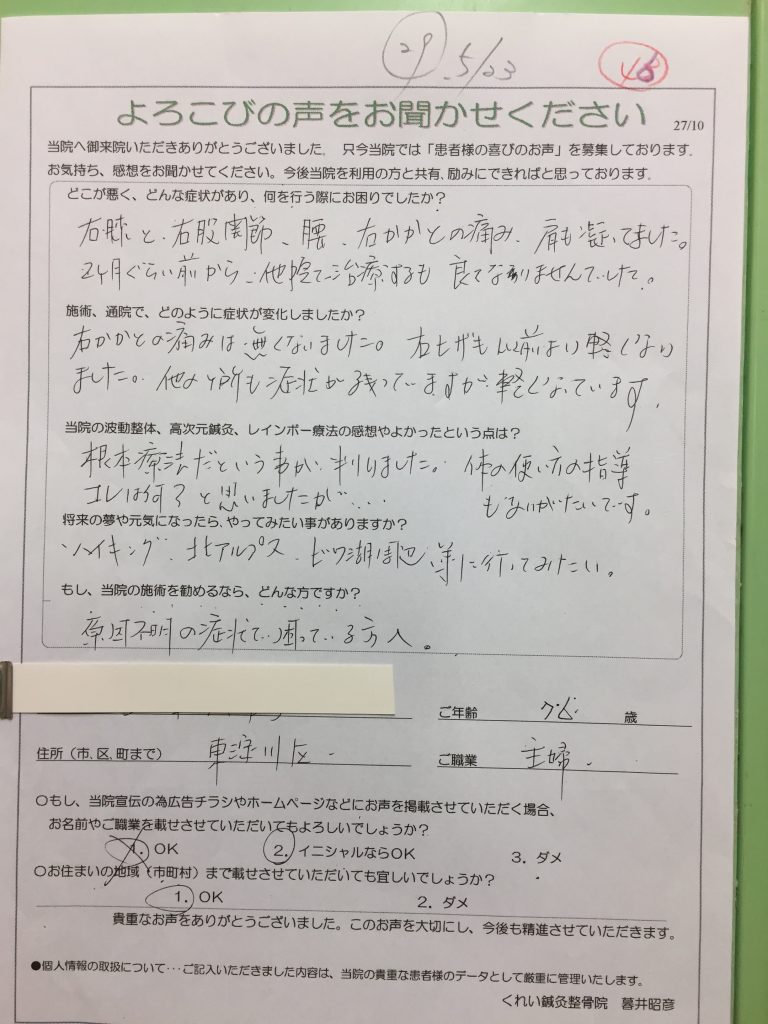 29 5/23
よろこびの声をお聞かせください
27/10
当院へ御来院いただきありがとうございました。 只今当院では「患者様の喜びのお声」を募集しております。
お気持ち、感想をお聞かせください。今後当院を利用の方と共有、励みにできればと思っております。
どこが悪く、どんな症状があり、何を行う際にお困りでしたか？
右膝と、右股関節、腰、右かかとの痛み、肩も凝ってました。
2ヶ月ぐらい前から、他院で治療するも 良くなりませんでした。
施術、通院で、どのように症状が変化しましたか？
右かかとの痛みは無くないました。 右ヒザも以前より軽くなり
ました。他の所も症状が残っていますが軽くなっています。
当院の波動整体、高次元鍼灸、レインボー療法の感想やよかったという点は？
根本療法だという事が判りました。 体の使い方の指導
コレは何？と思いましたが... もありがたいです。
将来の夢や元気になったら、やってみたい事がありますか？
ハイキング、北アルプス、ビワ湖周辺 等に行ってみたい。
もし、当院の施術を勧めるなら、どんな方ですか？
原因不明の症状で困っている方人。
ご年齢 歳
住所（市、区、町まで） 東淀川区
ご職業 主婦
〇もし、当院宣伝の為広告チラシやホームページなどにお声を掲載させていただく場合、
お名前やご職業を載せさせていただいてもよろしいでしょうか？
1．OK 2．イニシャルならOK 3．ダメ
〇お住まいの地域（市町村）まで載せさせていただいても宜しいでしょうか？
1．OK 2．ダメ
貴重なお声をありがとうございました。このお声を大切にし、今後も精進させていただきます。
●個人情報の取扱について・・・ご記入いただきました内容は、当院の貴重な患者様のデータとして厳重に管理いたします。
くれい鍼灸整骨院 暮井昭彦